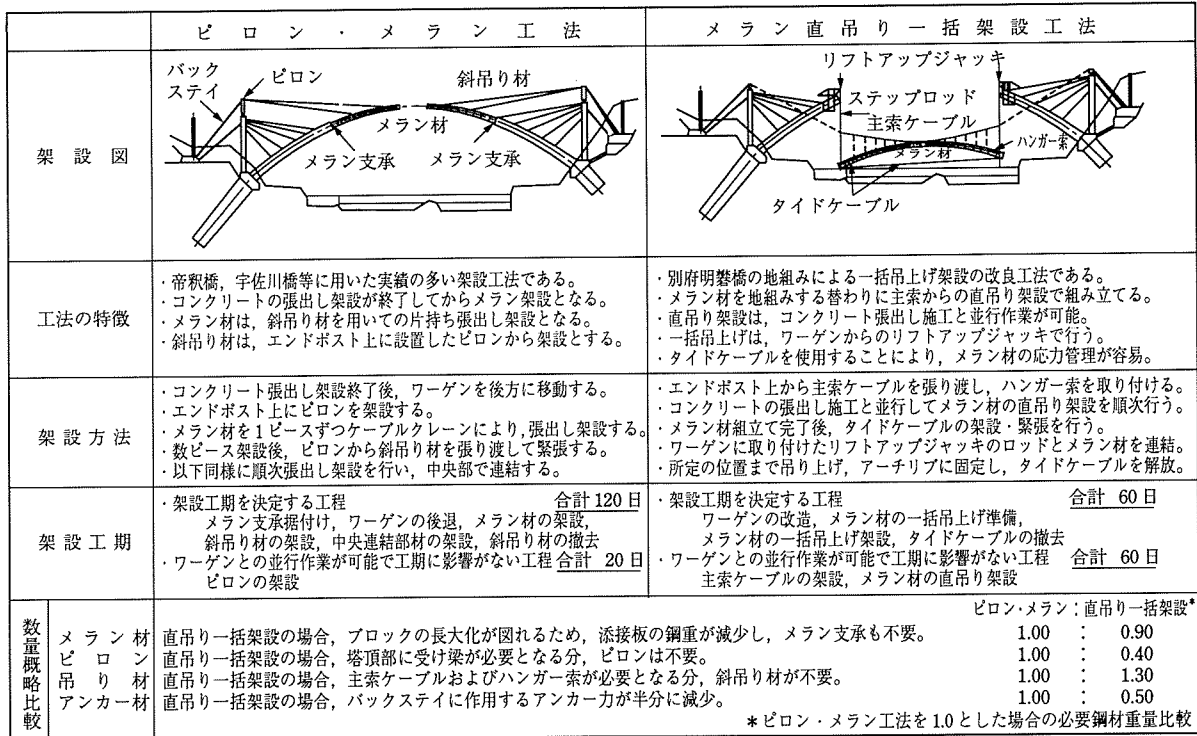 ピロン・メラン工法
メラン直吊り一括架設工法
架設図
バック
ステイ
ピロン
斜吊り材
メラン材
メラン支承
メラン支承
リフトアップジャッキ
ステップロッド
主索ケーブル
ハンガー索
メラン材
タイドケーブル
工法の特徴
・帝釈橋，宇佐川橋等に用いた実績の多い架設工法である。
・コンクリートの張出し架設が終了してからメラン架設となる。
・メラン材は，斜吊り材を用いての片持ち張出し架設となる。
・斜吊り材は，エンドポスト上に設置したピロンから架設とする。
・別府明礬橋の地組みによる一括吊上げ架設の改良工法である。
・メラン材を地組みする替わりに主索からの直吊り架設で組み立てる。
・直吊り架設は，コンクリート張出し施工と並行作業が可能。
・一括吊上げは，ワーゲンからのリフトアップジャッキで行う。
・タイドケーブルを使用することにより，メラン材の応力管理が容易。
架設方法
・コンクリート張出し架設終了後，ワーゲンを後方に移動する。
・エンドポスト上にピロンを架設する。
・メラン材を1ピースずつケーブルクレーンにより，張出し架設する。
・数ピース架設後，ピロンから斜吊り材を張り渡して緊張する。
・以下同様に順次張出し架設を行い，中央部で連結する。
・エンドポスト上から主索ケーブルを張り渡し，ハンガー索を取り付ける。
・コンクリートの張出し施工と並行してメラン材の直吊り架設を順次行う。
・メラン材組立て完了後，タイドケーブルの架設・緊張を行う。
・ワーゲンに取り付けたリフトアップジャッキのロッドとメラン材を連結。
・所定の位置まで吊り上げ，アーチリブに固定し，タイドケーブルを解放。
架設工期
・架設工期を決定する工程 合計 120 日
メラン支承据付け，ワーゲンの後退，メラン材の架設，
斜吊り材の架設，中央連結部材の架設，斜吊り材の撤去
・ワーゲンとの並行作業が可能で工期に影響がない工程 合計 20 日
ピロンの架設
・架設工期を決定する工程 合計 60 日
ワーゲンの改造，メラン材の一括吊上げ準備，
メラン材の一括吊上げ架設，タイドケーブルの撤去
・ワーゲンとの並行作業が可能で工期に影響がない工程 合計 60 日
主索ケーブルの架設，メラン材の直吊り架設
数量概略比較
ピロン・メラン：直吊り一括架設*
メラン材 直吊り一括架設の場合，ブロックの長大化が図れるため，添接板の鋼重が減少し，メラン支承も不要。 1.00 : 0.90
ピロン 直吊り一括架設の場合，塔頂部に受け梁が必要となる分，ピロンは不要。 1.00 : 0.40
吊り材 直吊り一括架設の場合，主索ケーブルおよびハンガー索が必要となる分，斜吊り材が不要。 1.00 : 1.30
アンカー材 直吊り一括架設の場合，バックステイに作用するアンカー力が半分に減少。 1.00 : 0.50
*ピロン・メラン工法を1.0とした場合の必要鋼材重量比較